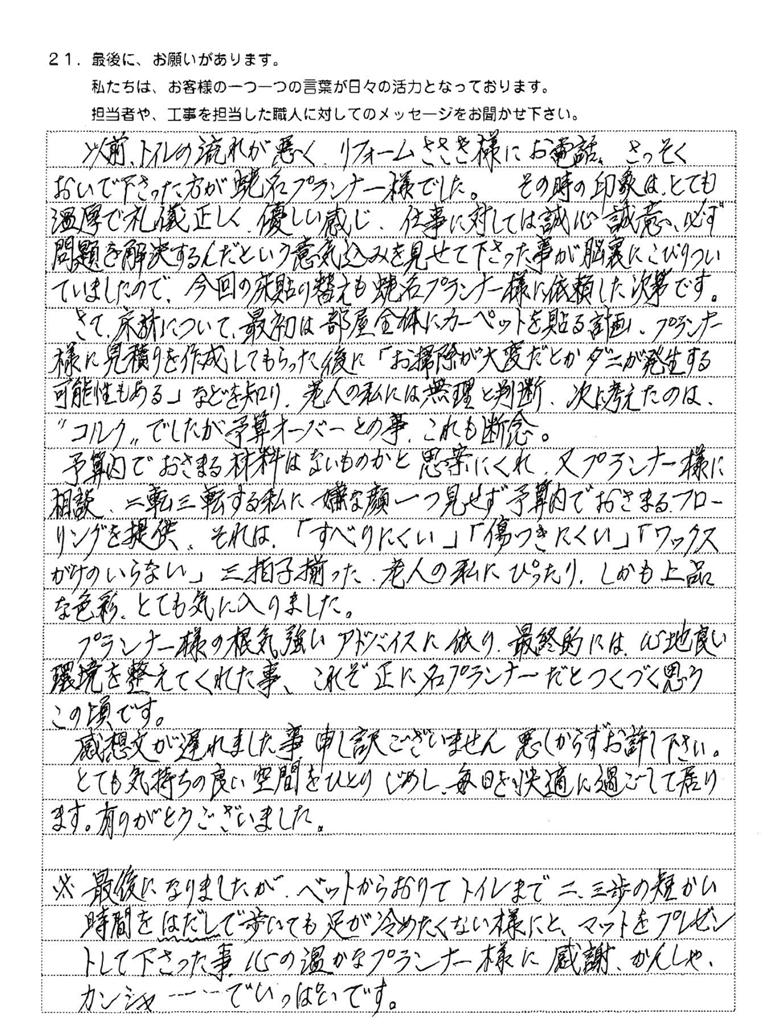 21. 最後に、お願いがあります。
私たちは、お客様の一つ一つの言葉が日々の活力となっております。
担当者や、工事を担当した職人に対してのメッセージをお聞かせ下さい。
以前、トイレの流れが悪く、リフォームささき様にお電話、さっそく
おいで下さった方が蛯名プランナー様でした。 その時の印象は、とても
温厚で礼儀正しく、優しい感じ、仕事に対しては誠心誠意、必ず
問題を解決するんだという意気込みを見せて下さった事が脳裏にこびりつい
ていましたので、今回の床貼り替えも蛯名プランナー様に依頼した次第です。
さて、床材について、最初は部屋全体にカーペットを貼る計画、プランナー
様に見積りを作成してもらった後に「お掃除が大変だとかダニが発生する
可能性もある」などを知り、老人の私には無理と判断、次に考えたのは、
"コルク"でしたが予算オーバーとの事、これも断念。
予算内でおさまる材料はないものかと思案にくれ、又プランナー様に
相談、二転三転する私に嫌な顔一つ見せず予算内でおさまるフロー
リングを提供、それは、「すべりにくい」「傷つきにくい」「ワックス
がけのいらない」三拍子揃った、老人の私にぴったり、しかも上品
な色彩、とても気に入りました。
プランナー様の根気強いアドバイスに依り、最終的には、心地良い
環境を整えてくれた事、これぞ正に名プランナーだとつくづく思う
この頃です。
感想文が遅れました事申し訳ございません 悪しからずお許し下さい。
とても気持ちの良い空間をひとりじめし、毎日を快適に過ごして居り
ます。有りがとうございました。
※最後になりましたが、ベットからおりてトイレまで二、三歩の短かい
時間をはだしで歩いても足が冷めたくない様にと、マットをプレゼン
トして下さった事、心の温かなプランナー様に感謝、かんしゃ、
カンシャ……でいっぱいです。